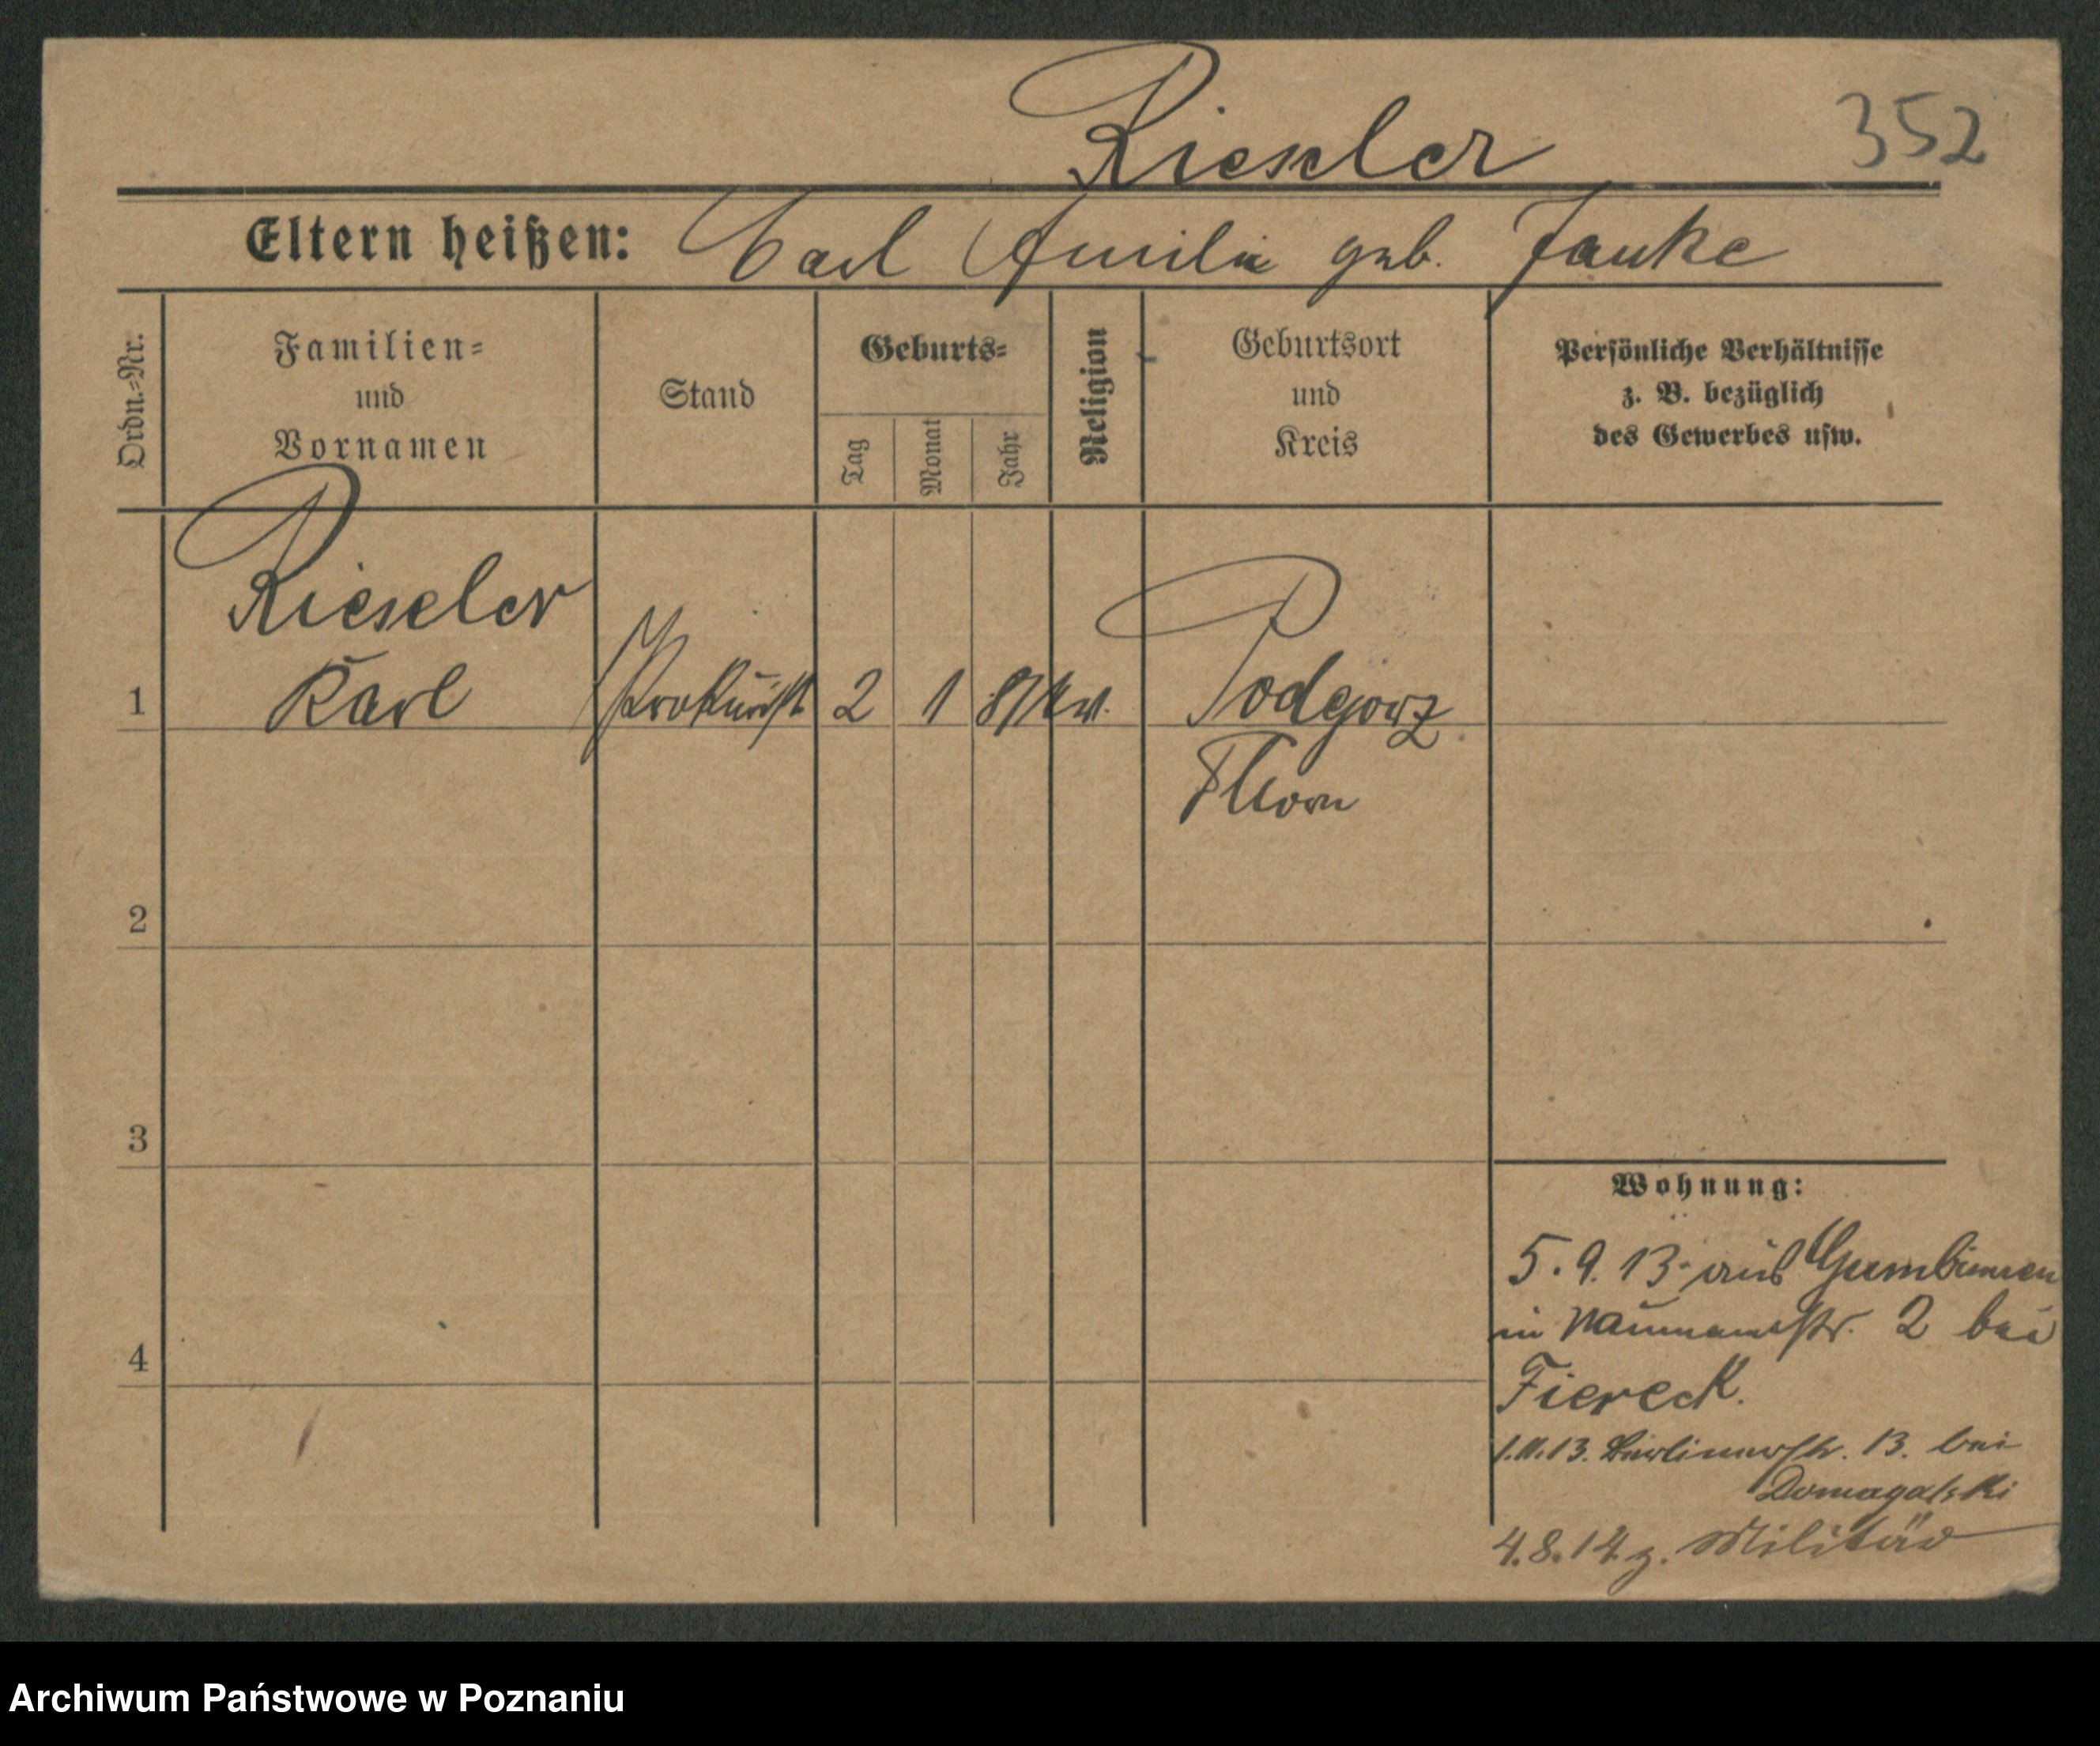 352
Rieseler
Eltern heißen: Carl Amilie geb. Janke
Ordn.-Nr.
Familien-
und
Vornamen
Stand
Geburts-
Tag
Monat
Jahr
Religion
Geburtsort
und
Kreis
Persönliche Verhältnisse
z. B. bezüglich
des Gewerbes usw.
Rieseler
1 Karl Prokurist 2 1 87 ev. Podgorz
Thorn
2
3
4
Wohnung:
5.9.13 aus Gumbinnen
in Naumannstr. 2 bei
Fiereck.
1.11.13. Berlinerstr. 13. bei
Domagalski
4.8.14 z. Militär
Archiwum Państwowe w Poznaniu